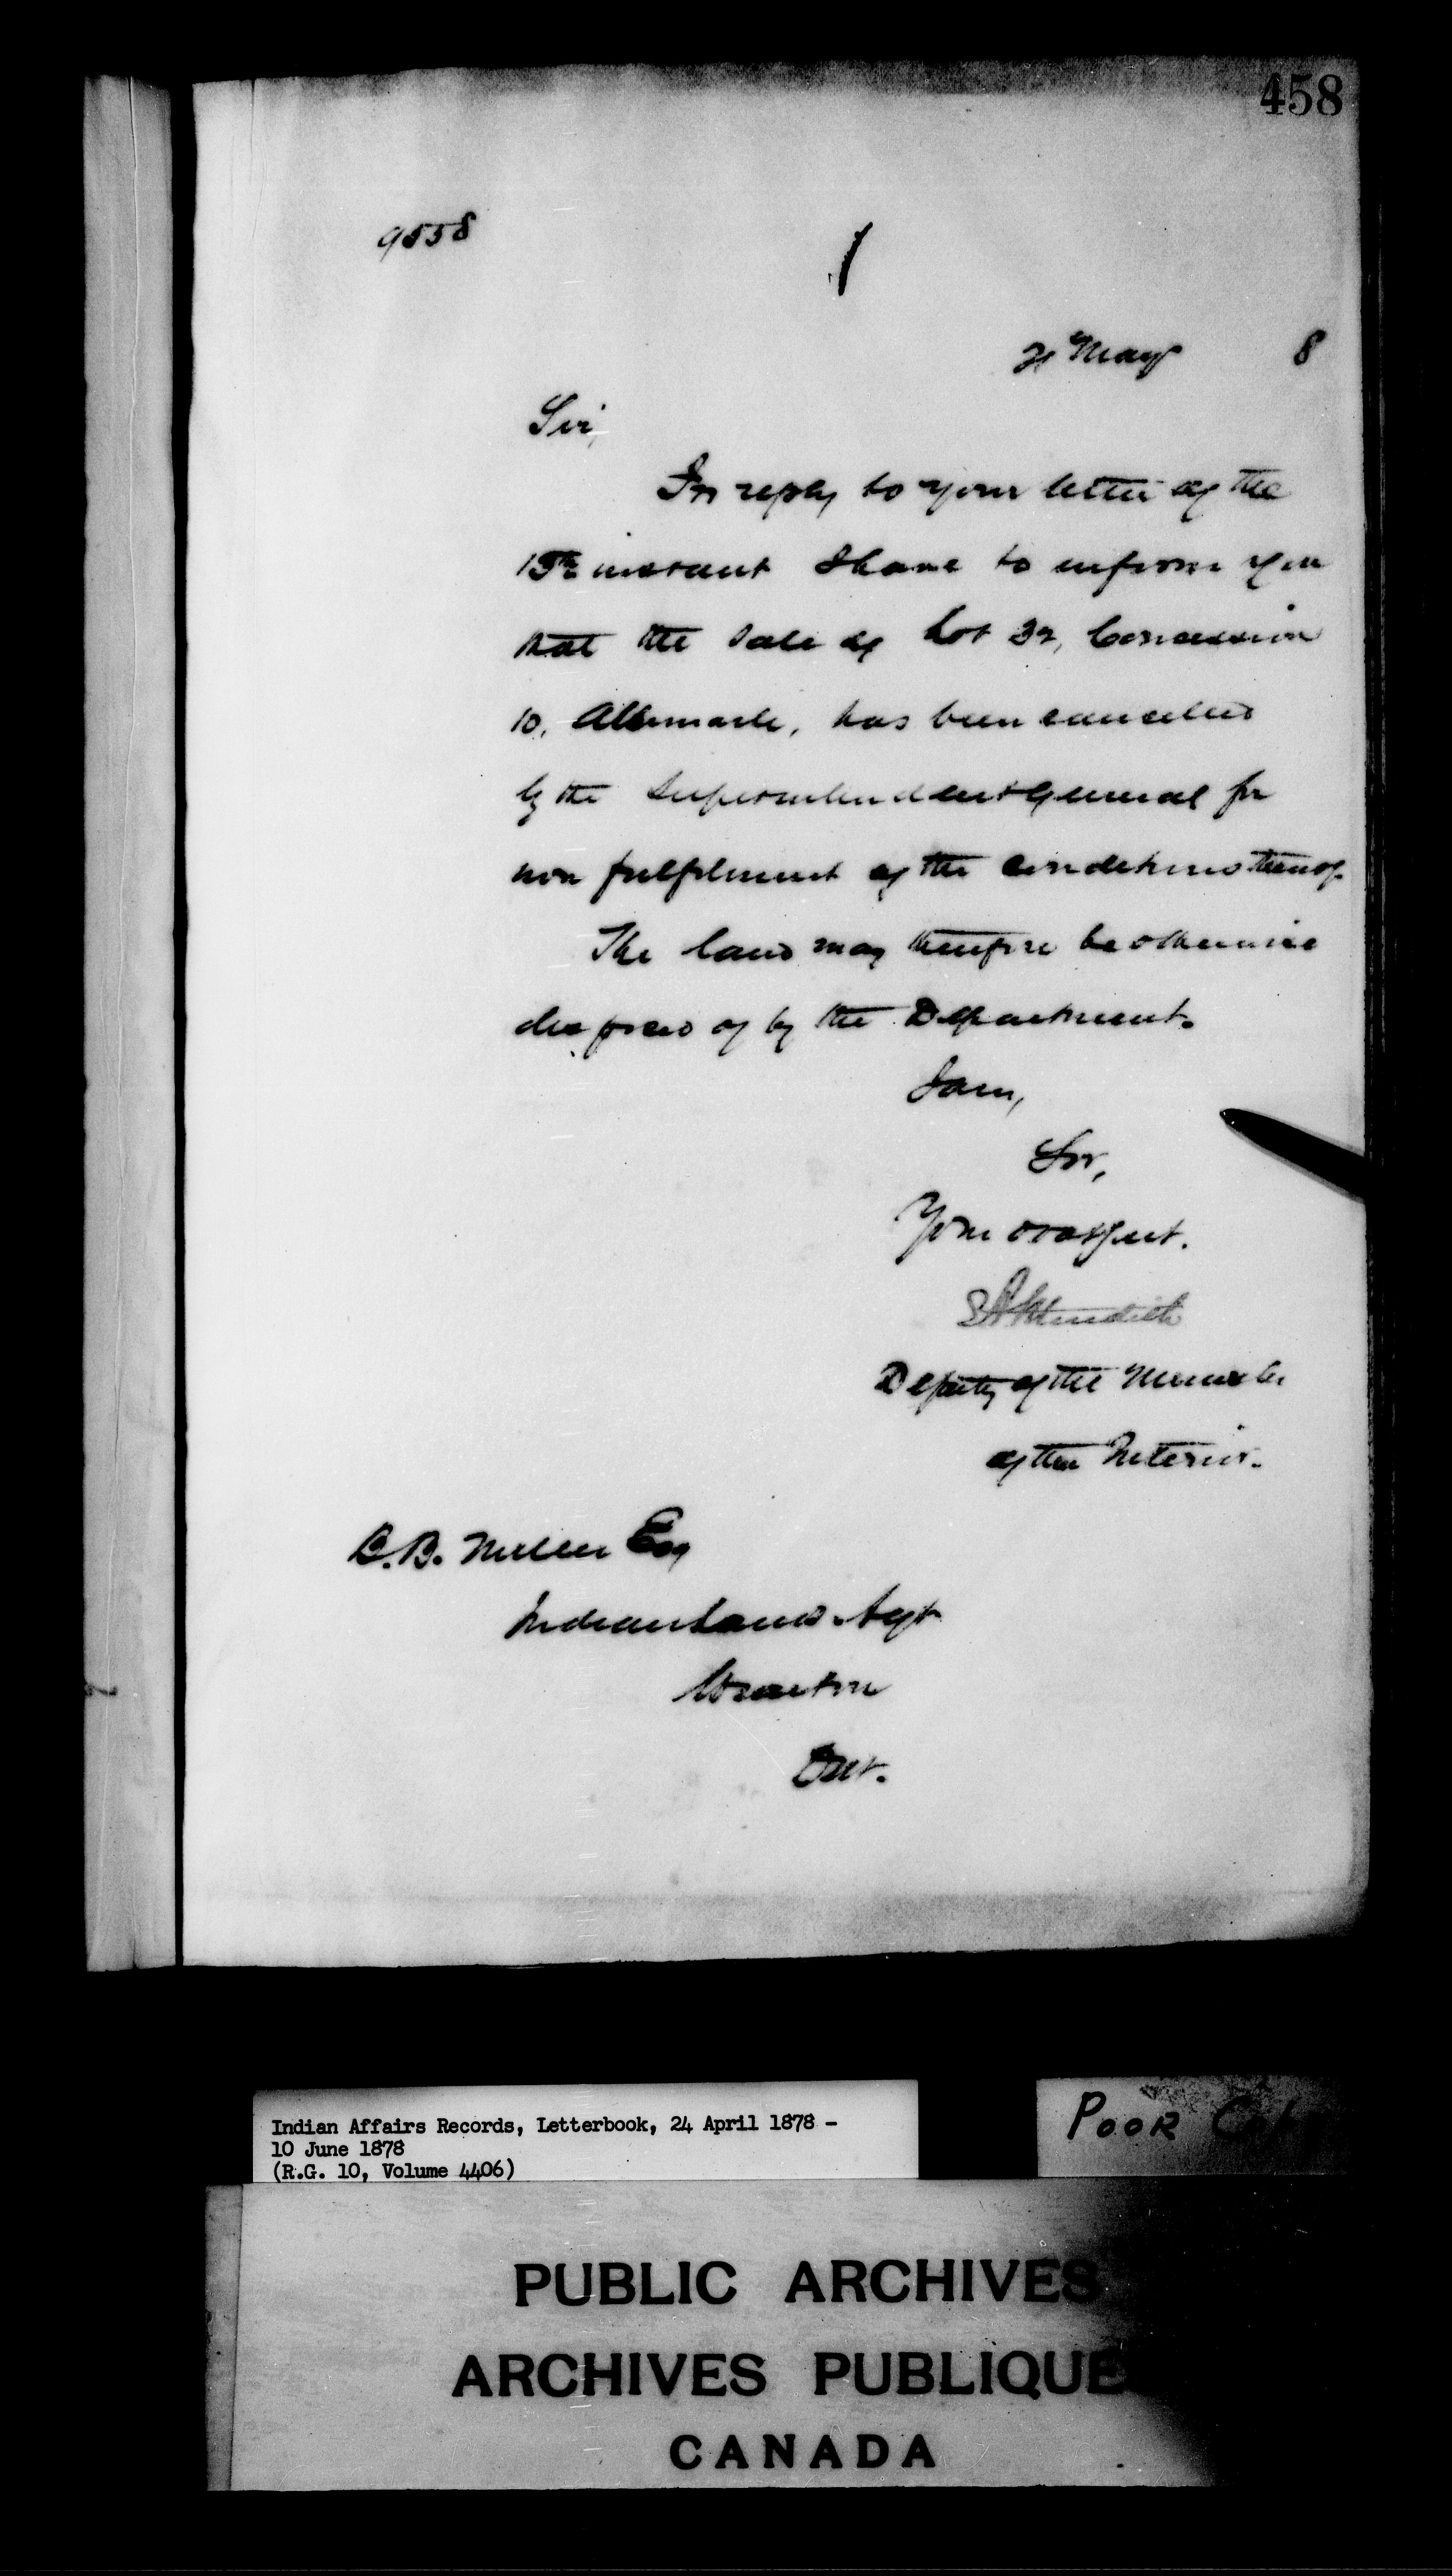 458
9558
May 8
Sir,
In reply to your letter of the
15th instant I have to inform you
that the sale of Lot 32, Concession
10, Albemarle, has been cancelled
by the Superintendent General for
non fulfilment of the conditions thereof.
The land may therefore be otherwise
disposed of by the Department.
I am,
Sir,
Your obt Servt.
Deputy of the Minister
of the Interior.
B.B. Miller Esq
Indian Land Agt
Wiarton
Ont.
Indian Affairs Records, Letterbook, 24 April 1878 -
10 June 1878
(R.G. 10, Volume 4406)
POOR Copy
PUBLIC ARCHIVES
ARCHIVES PUBLIQUE
CANADA